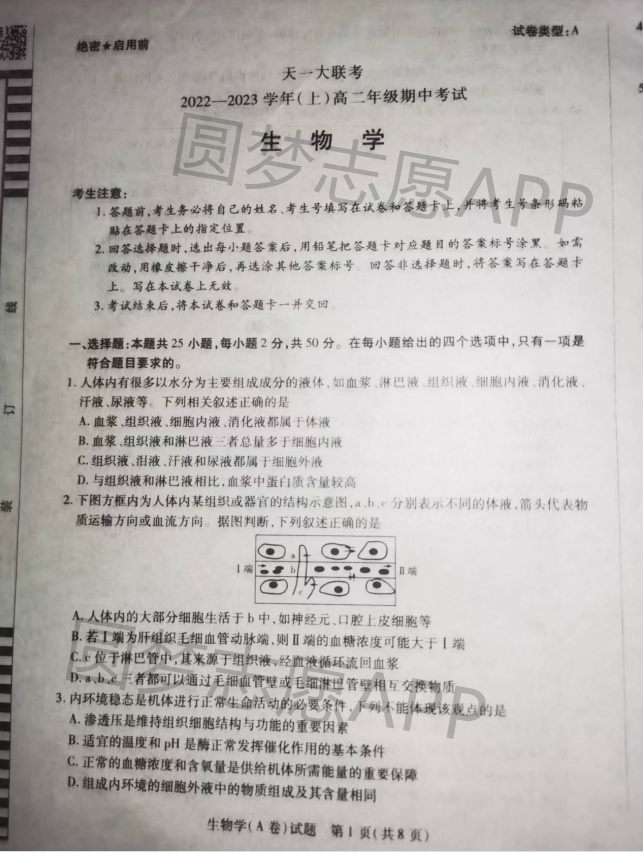 绝密★启用前
试卷类型:A
天一大联考
2022—2023学年(上)高二年级期中考试
生物学
圆梦志愿APP
考生注意:
1.答题前,考生务必将自己的姓名、考生号填写在试卷和答题卡上,并将考生号条形码粘
贴在答题卡上的指定位置。
2.回答选择题时,选出每小题答案后,用铅笔把答题卡对应题目的答案标号涂黑。如需
改动,用橡皮擦干净后,再选涂其他答案标号。回答非选择题时,将答案写在答题卡
上。写在本试卷上无效。
3.考试结束后,将本试卷和答题卡一并交回。
一、选择题:本题共25小题,每小题2分,共50分。在每小题给出的四个选项中,只有一项是
符合题目要求的。
1.人体内有很多以水分为主要组成成分的液体,如血浆、淋巴液、组织液、细胞内液、消化液、
汗液、尿液等。下列相关叙述正确的是
A.血浆、组织液、细胞内液、消化液都属于体液
B.血浆、组织液和淋巴液三者总量多于细胞内液
C.组织液、泪液、汗液和尿液都属于细胞外液
D.与组织液和淋巴液相比,血浆中蛋白质含量较高
2.下图方框内为人体内某组织或器官的结构示意图,a、b、c分别表示不同的体液,箭头代表物
质运输方向或血流方向。据图判断,下列叙述正确的是
a
Ⅰ端
b
Ⅱ端
c
A.人体内的大部分细胞生活于b中,如神经元、口腔上皮细胞等
B.若Ⅰ端为肝组织毛细血管动脉端,则Ⅱ端的血糖浓度可能大于Ⅰ端
C.c位于淋巴管中,其来源于组织液,经血液循环流回血浆
D.a、b、c三者都可以通过毛细血管壁或毛细淋巴管壁相互交换物质
圆梦志愿APP
3.内环境稳态是机体进行正常生命活动的必要条件,下列不能体现该观点的是
A.渗透压是维持组织细胞结构与功能的重要因素
B.适宜的温度和pH是酶正常发挥催化作用的基本条件
C.正常的血糖浓度和含氧量是供给机体所需能量的重要保障
D.组成内环境的细胞外液中的物质组成及其含量相同
生物学(A卷)试题 第1页(共8页)
线
订
装
4
5